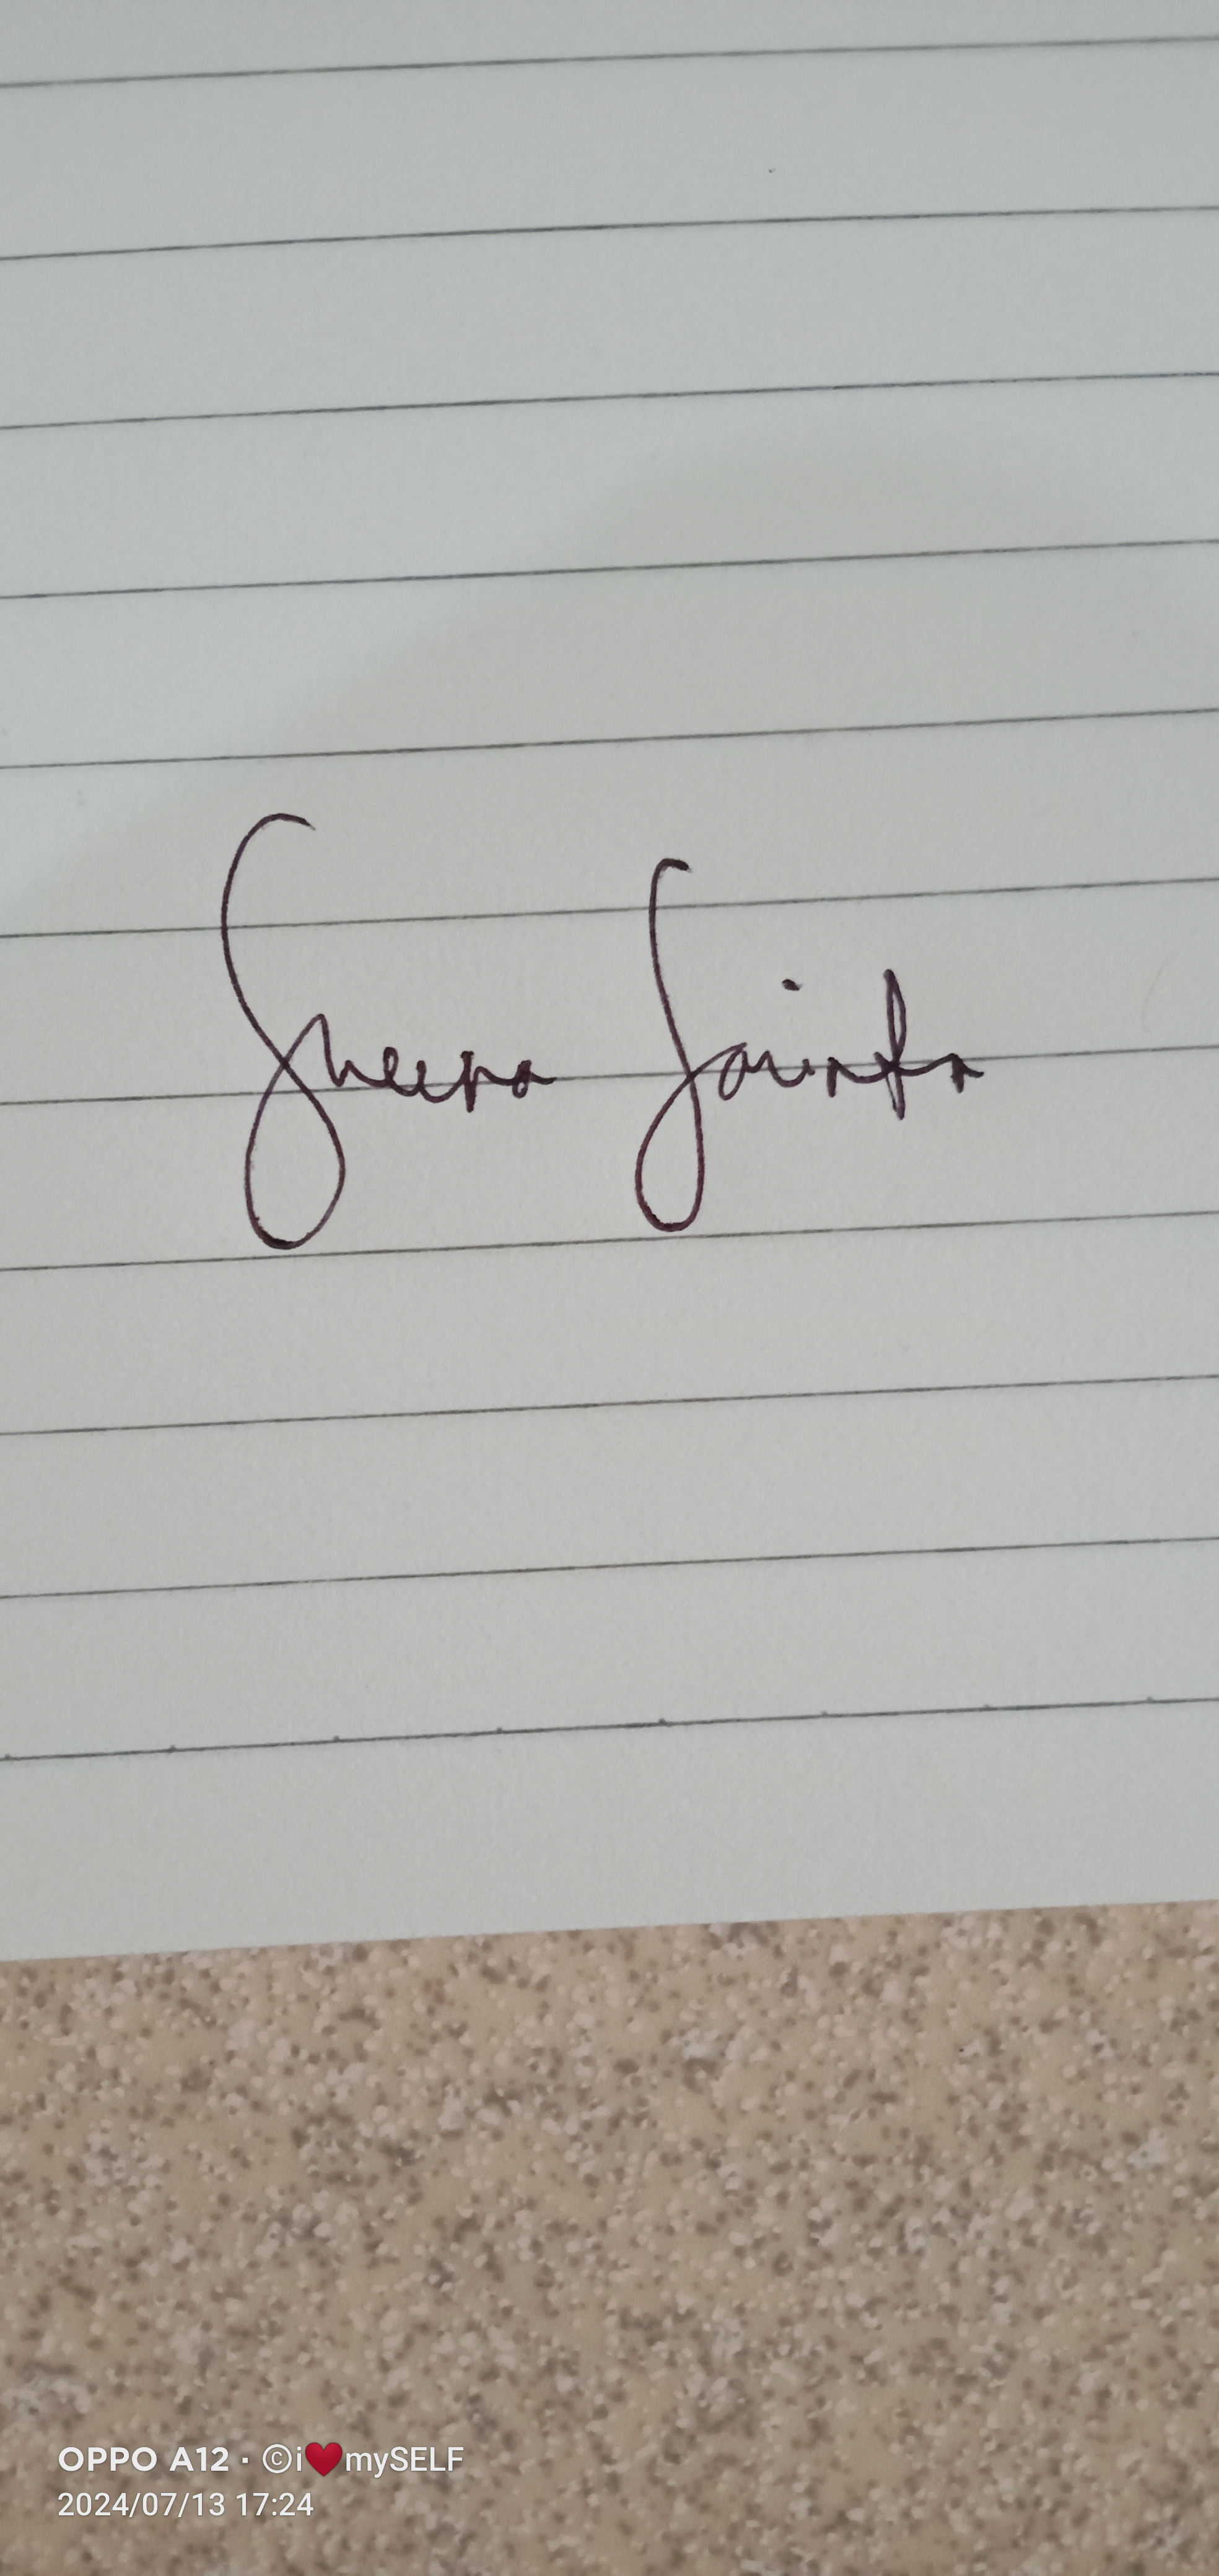 Sheena Sainta
OPPO A12 · ©i❤mySELF
2024/07/13 17:24